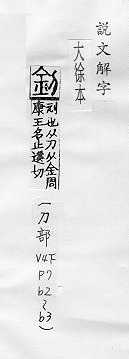 説文解字
大徐本
釗
刓也从刀从金周
康王名止遙切
(刀部 V4下 P7 b2~b3)